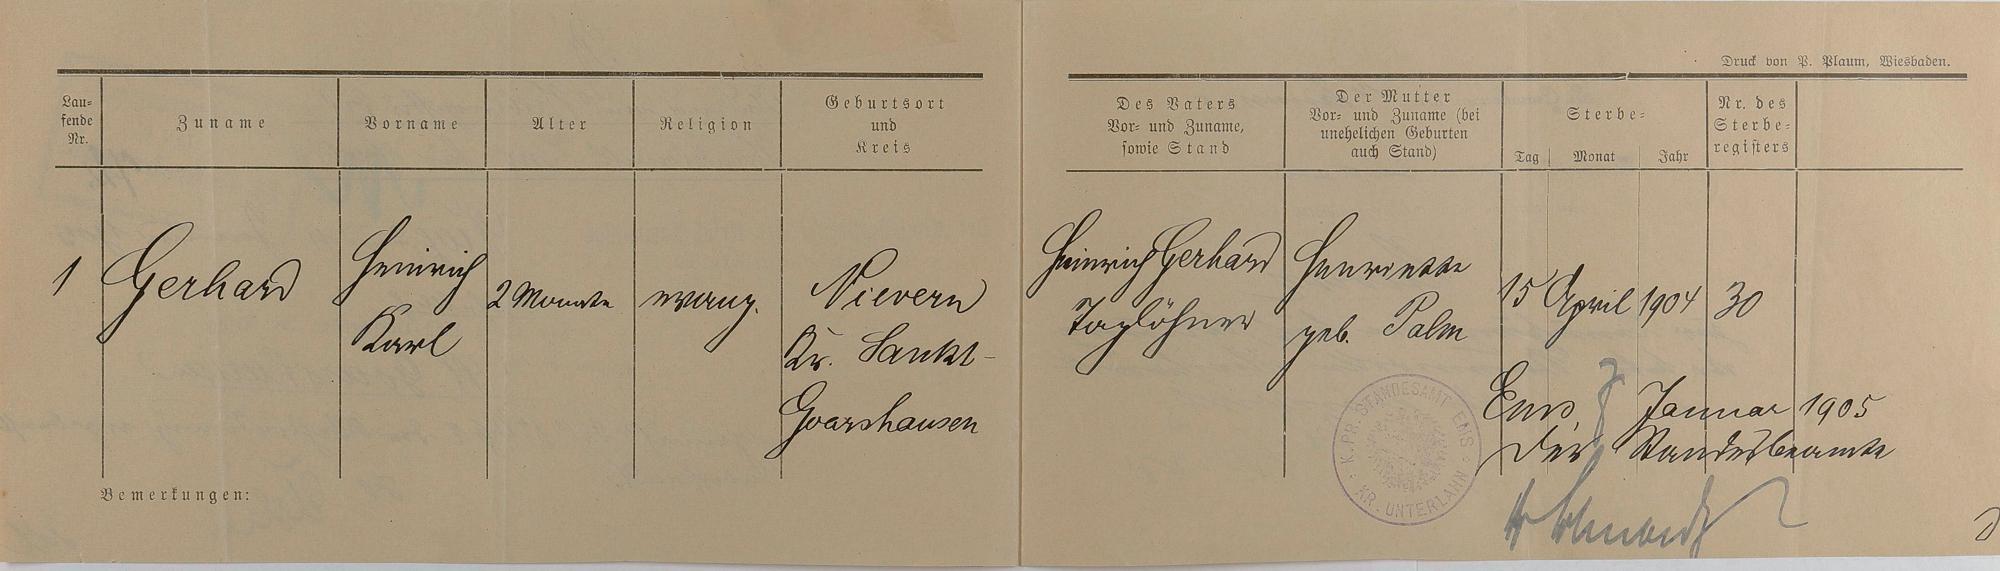 Druck von P. Plaum, Wiesbaden.
Lau-
fende
Nr.
Zuname
Vorname
Alter
Religion
Geburtsort
und
Kreis
Des Vaters
Vor- und Zuname,
sowie Stand
Der Mutter
Vor- und Zuname (bei
unehelichen Geburten
auch Stand)
Sterbe-
Tag
Monat
Jahr
Nr. des
Sterbe-
registers
1
Gerhard
Heinrich
Karl
2 Monate
evang.
Nievern
Kr. Sankt-
Goarshausen
Heinrich Gerhard
Taglöhner
Henriette
geb. Palm
15 April 1904
30
Ems 7 Januar 1905
Der Standesbeamte
K. PR. STANDESAMT EMS
KR. UNTERLAHN
Bemerkungen: